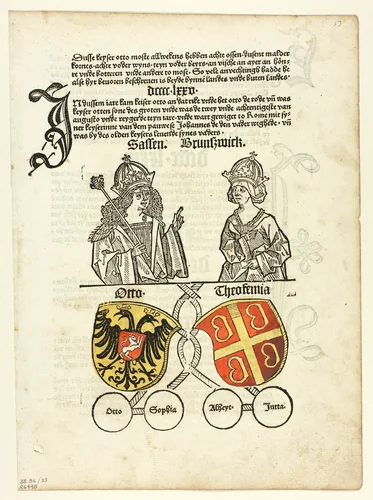 Dusse keyser otto moste alle wekens hebben achte ossen dusent malder
kornes achte voder wyns teyn voder beyrs an vische an ayer an hön
ren vnde botteren vnde andere to mose. So vele anvechtingh hadde he
alse hyr bevoren beschreuen is beyde bynnē landes vnde buten landes.
dcccc.lxxv.
IN dussem iare kam keiser otto an dat rike vnde het otto de rode vn̄ was
keyser otten sone des groten vnde was de drey vnde achtentigeste van
augusto vnde regerde teyn iare vnde wart gewiget to Rome mit sy
ner keyserinne van dem pauwese Johannes de den vader wighede. vn̄
was by des olden keysers leuende synes vaders.
Sassen. Brunswick.
Otto. Theofeinia
Otto Sophia Alheyt. Jutta.